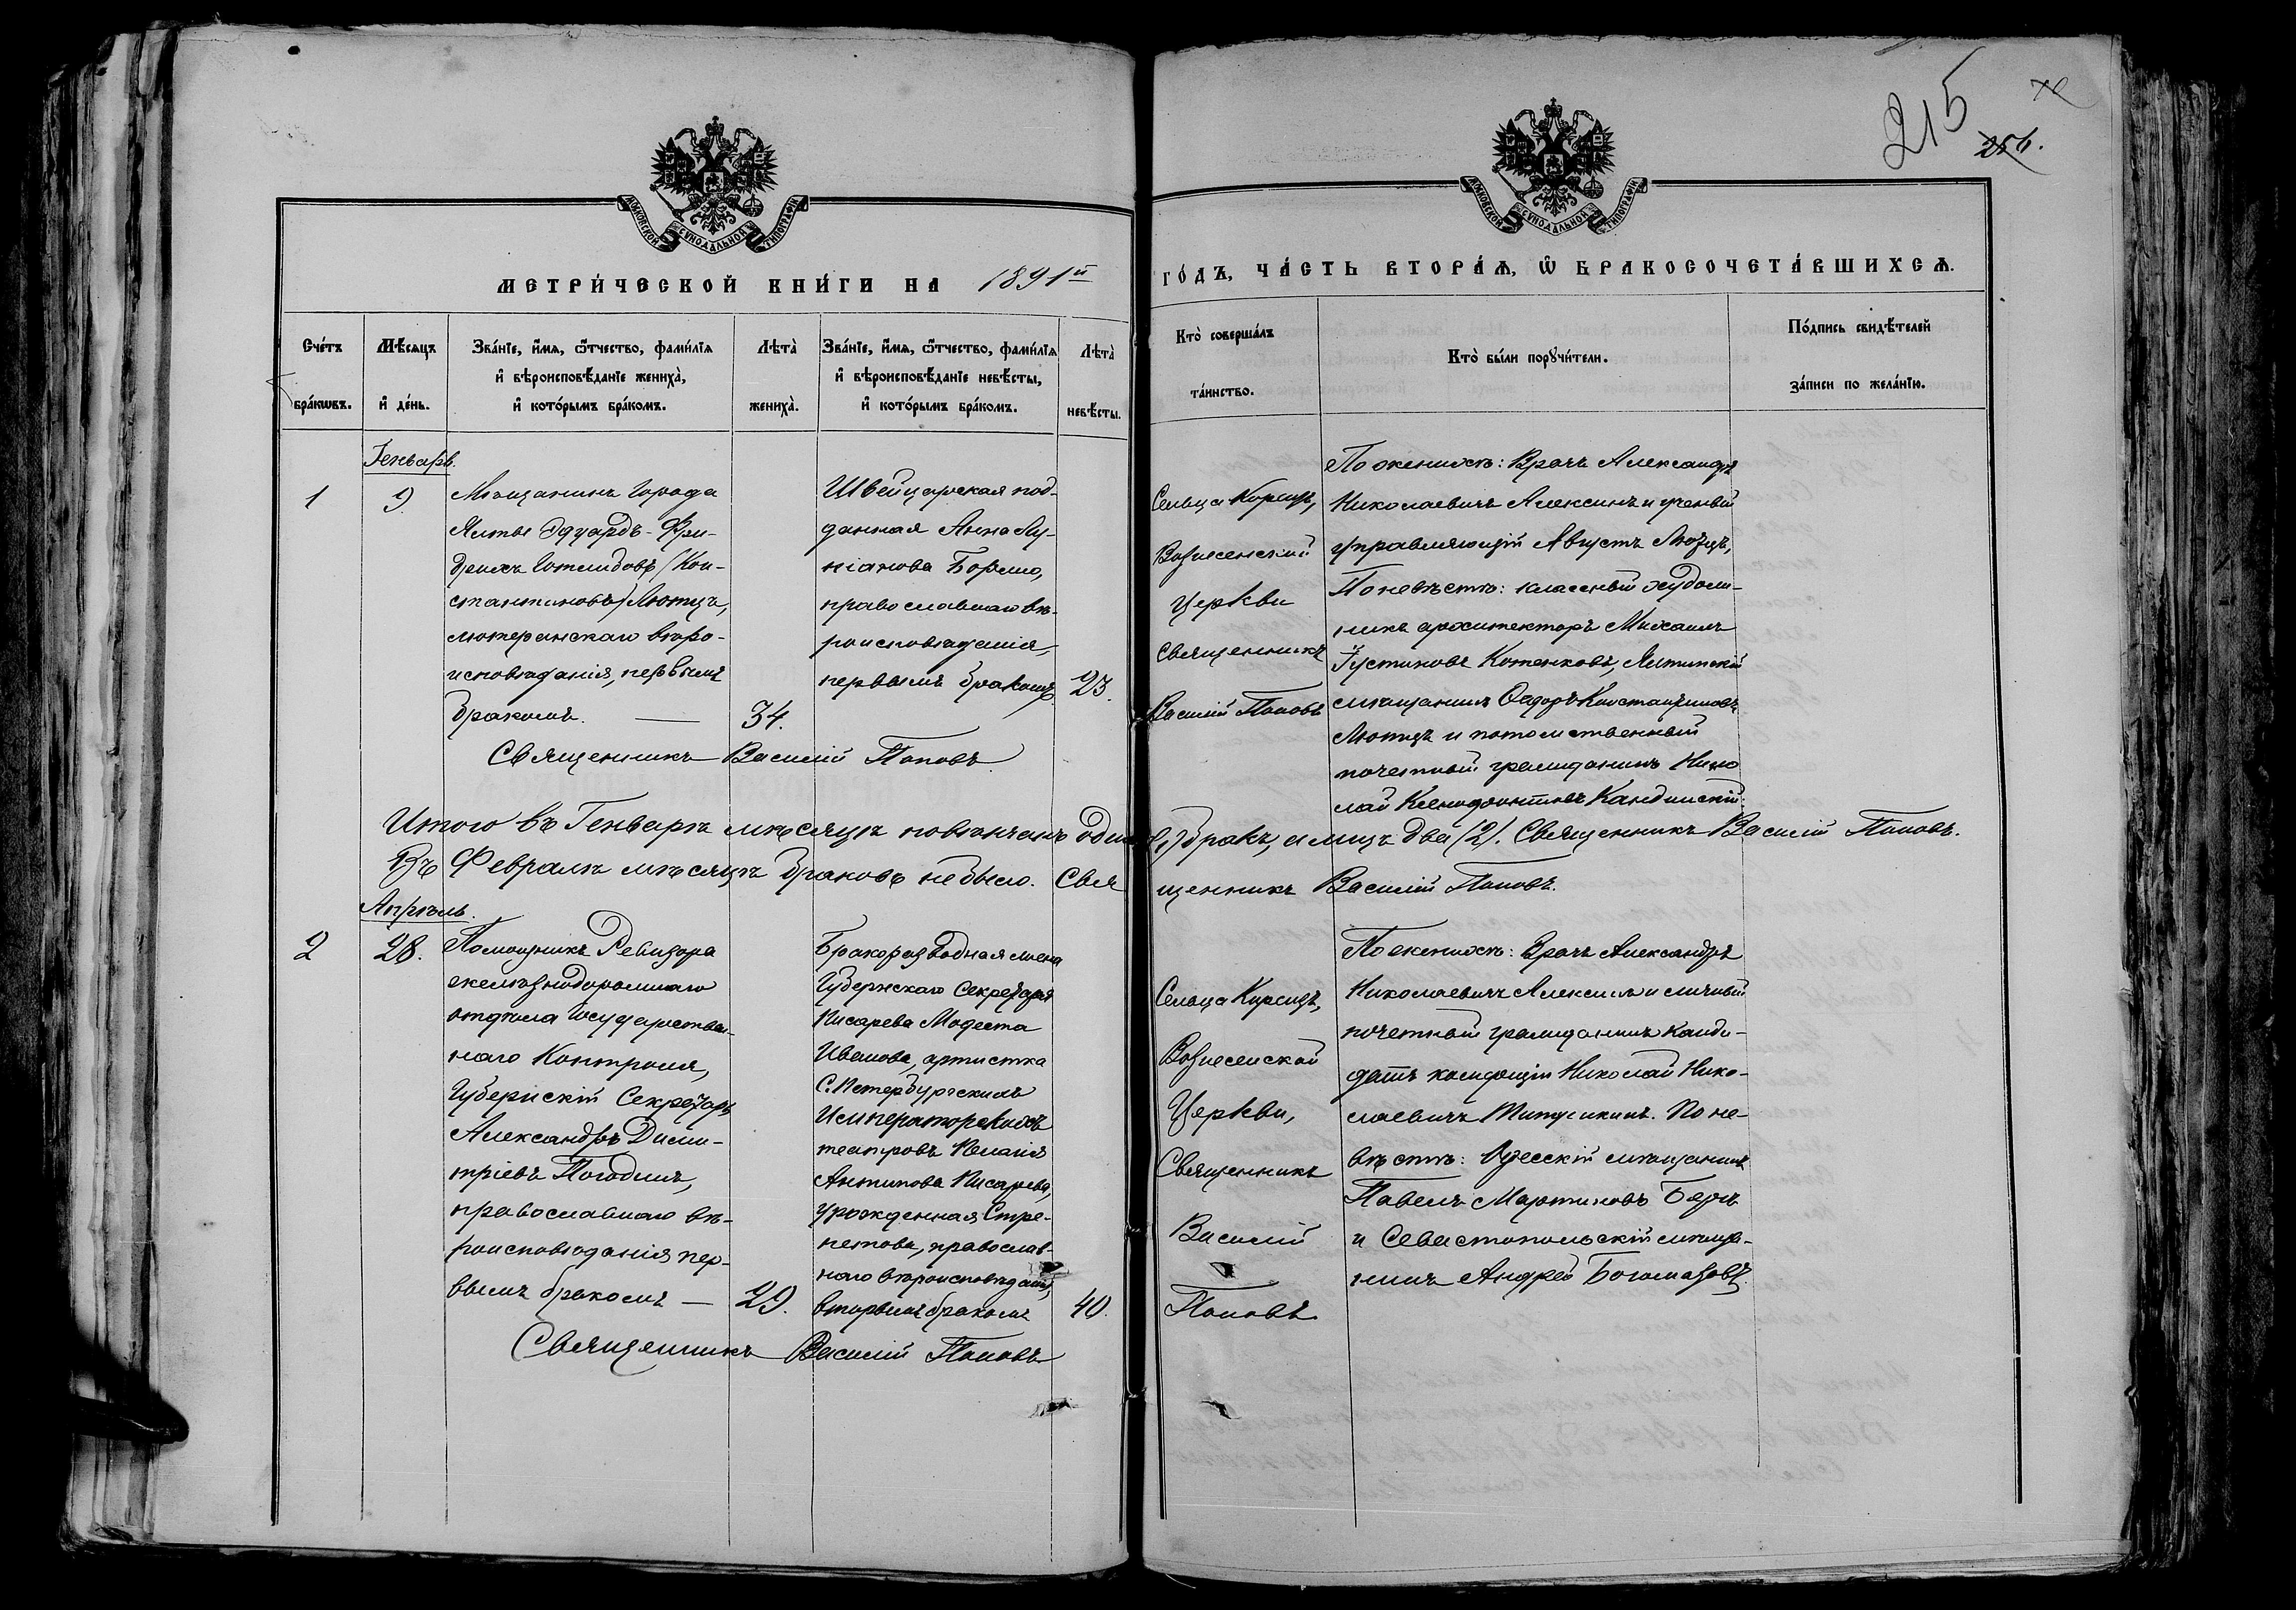 215
256.
МОСКОВСКОЙ СУНОДАЛЬНОЙ ТИПОГРАФІИ
МОСКОВСКОЙ СУНОДАЛЬНОЙ ТИПОГРАФІИ
МЕТРИ́ЧЕСКОЙ КНИ́ГИ НА 1891й
ГО́ДЪ, ЧА́СТЬ ВТОРА́Ѧ, Ѽ БРАКОСОЧЕТА́ВШИХСѦ.
Сче́тъ бра́кѡвъ.
Мѣ́сѧцъ и҆ де́нь.
Зва́нїе, и҆́мѧ, ѻ҆́тчество, фами́лїѧ
и҆ вѣроисповѣ́данїе жениха̀,
и҆ кото́рымъ бра́комъ.
Лѣ́та̀ жениха̀.
Зва́нїе, и҆́мѧ, ѻ҆́тчество, фами́лїѧ
и҆ вѣроисповѣ́данїе невѣ́сты,
и҆ кото́рымъ бра́комъ.
Лѣ́та̀ невѣ́сты.
Кто̀ соверша́лъ
та́инство.
Кто̀ бы́ли порꙋчи́тели.
По́дпись свидѣ́телей
за́писи по жела́нїю.
Генварь.
1
9
Мѣщанинъ города
Ялты Эдуардъ-Фри-
дрихъ Готлибовъ (Кон-
стантиновъ) Лютцъ,
лютеранскаго вѣро-
исповѣданія, первымъ
бракомъ.
34.
Швейцарская под-
данная Анна Лу-
ніанова
православнаго вѣ-
роисповѣданія,
первымъ бракомъ
23.
Сельца Курсицъ,
Вознесенской
Церкви
Священникъ
Василій Поповъ
По женихѣ: Врачъ Александръ
Николаевичъ Алексинъ и ученый
управляющій Августъ Лютцъ,
По невѣстѣ: классный худож-
никъ архитекторъ Михаилъ
Іустиновъ Котенковъ, Ялтинскій
мѣщанинъ Ѳедоръ Константиновъ
Лютцъ и потомственный
почетный гражданинъ Нико
лай Ксенофонтовъ Кандинскій.
Священникъ Василій Поповъ
Итого въ Генварѣ мѣсяцѣ повѣнчанъ одинъ (1) бракъ, а лицъ два (2). Священникъ Василій Поповъ.
Въ Февралѣ мѣсяцѣ браковъ не было. Свя
щенникъ Василій Поповъ.
Апрѣль.
2
28.
Помощникъ Ревизора
желѣзнодорожнаго
отдѣла Государствен-
наго Контроля,
Губернскій Секретарь
Александръ Дими-
тріевъ Погодинъ,
православнаго вѣ-
роисповѣданія пер-
вымъ бракомъ —
29.
Бракоразводная жена
Губернскаго Секретаря
Писарева Модеста
Иванова, артистка
С.Петербургскихъ
Императорскихъ
театровъ Пелагія
Антипова Писарева,
урожденная Стре-
петова, православ-
наго вѣроисповѣданія,
вторымъ бракомъ
40.
Сельца Курсицъ,
Вознесенской
Церкви,
Священникъ
Василій
Поповъ.
По женихѣ: Врачъ Александръ
Николаевичъ Алексинъ и личный
почетный гражданинъ канди-
датъ комерціи Николай Нико-
лаевичъ Титушкинъ. По не-
вѣстѣ: Одесскій мѣщанинъ
Павелъ Мартиновъ Бергъ
и Севастопольскій мѣща-
нинъ Андрей Богомазовъ
Священникъ Василій Поповъ